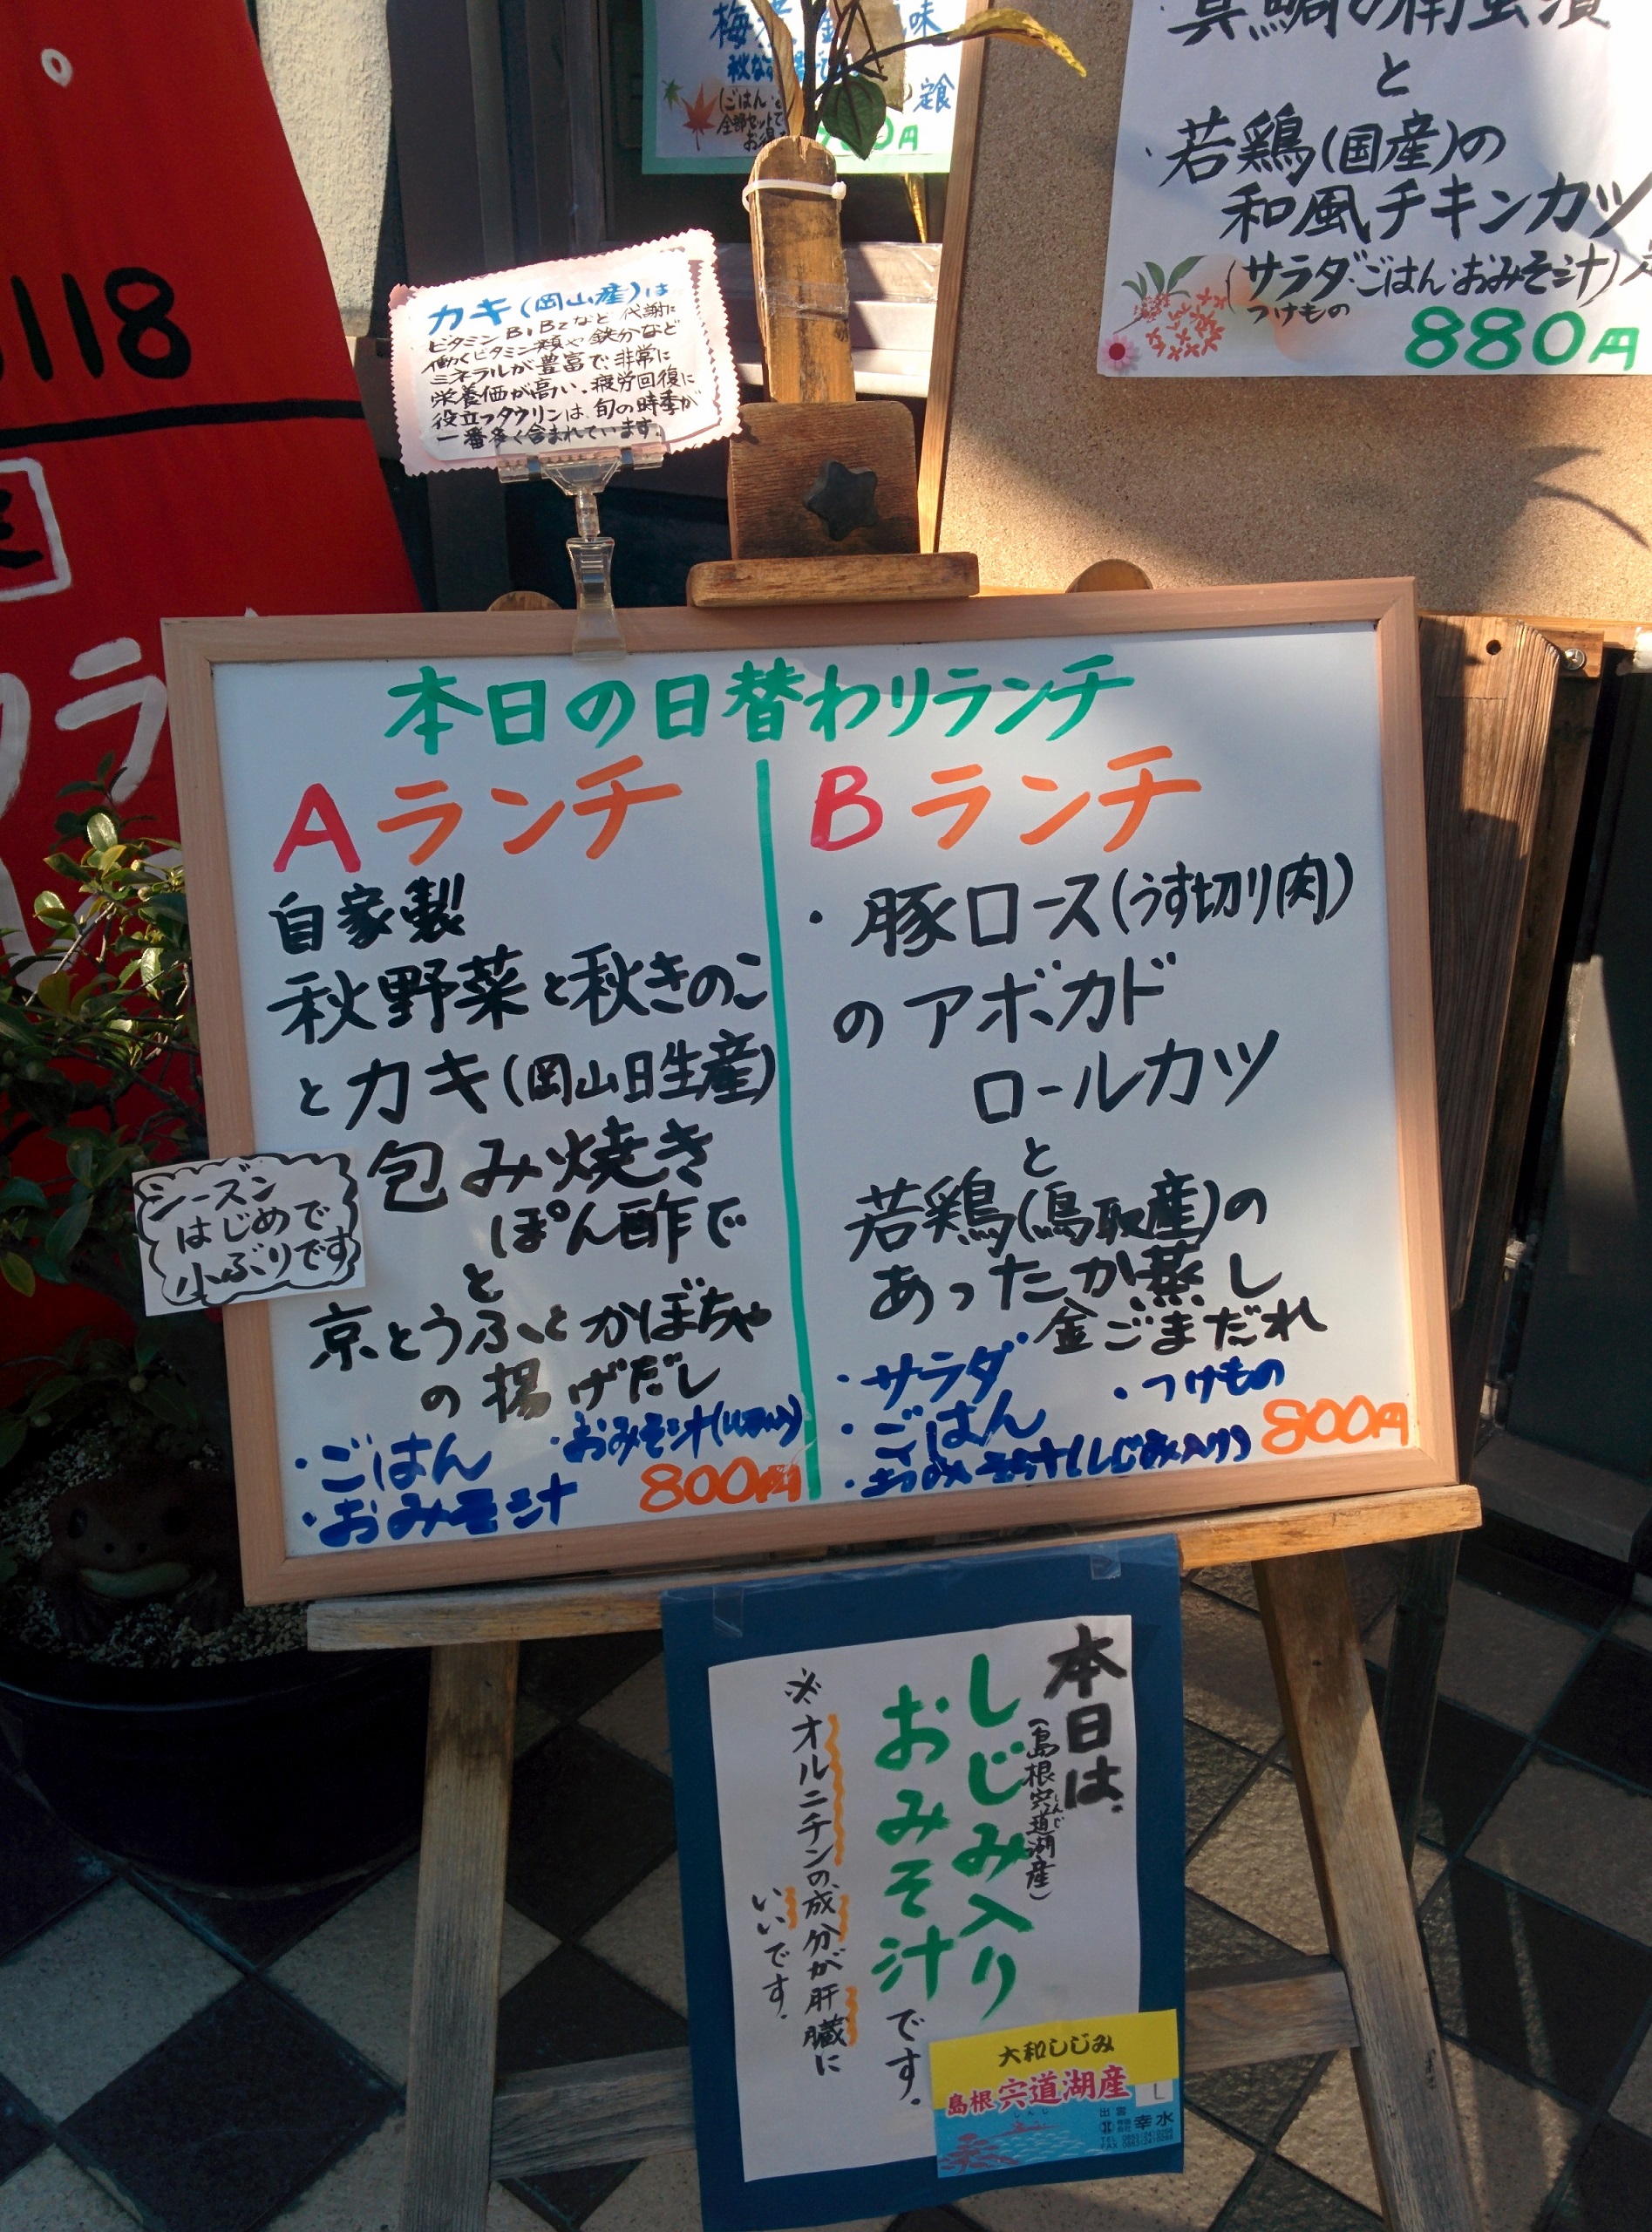 118
梅
味
秋な
定食
(ごはん
全部セットで
0円
と
・若鶏(国産)の
和風チキンカツ
(サラダ・ごはん・おみそ汁)
つけもの
880円
カキ(岡山産)は
ビタミンB1B2など代謝に
働くビタミン類や鉄分など
ミネラルが豊富で、非常に
栄養価が高い。疲労回復に
役立つタウリンは、旬の時季が
一番多く含まれています。
ラ
本日の日替わりランチ
Aランチ
自家製
秋野菜と秋きのこ
とカキ(岡山日生産)
包み焼き
ぽん酢で
と
京とうふとかぼちゃ
の揚げだし
・ごはん
・おみそ汁(しじみ入り)
・おみそ汁
800円
シーズン
はじめで
小ぶりです
Bランチ
・豚ロース(うす切り肉)
のアボカド
ロールカツ
と
若鶏(鳥取産)の
あったか蒸し
金ごまだれ
・サラダ
・つけもの
・ごはん
・おみそ汁(しじみ入り)
800円
本日は、
(島根宍道湖産)
しんじ
しじみ入り
おみそ汁です。
※オルニチンの成分が肝臓に
いいです。
大和しじみ
島根 宍道湖産
しんじ
L
出雲
幸水